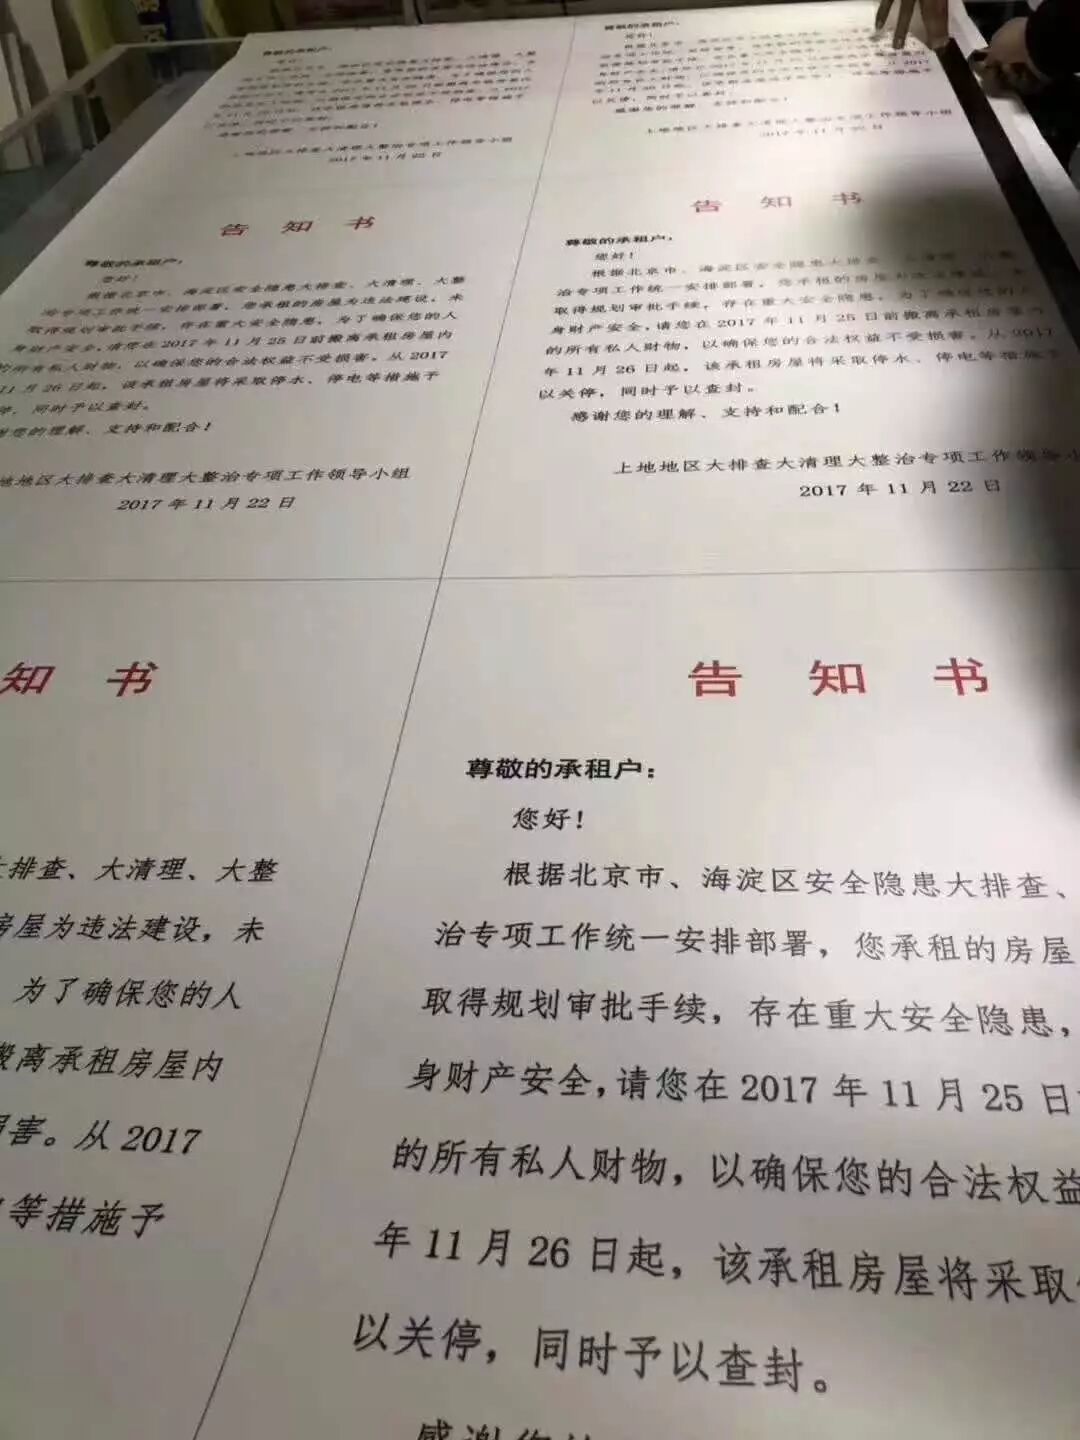 尊敬的承租户:
您好!
上地地区大排查大清理大整治专项工作领导小组
2017年11月22日
尊敬的承租户:
您好!
以关停,同时予以查封。
感谢您的理解、支持和配合!
上地地区大排查大清理大整治专项工作领导小组
2017年11月22日
告知书
尊敬的承租户:
您好!
根据北京市、海淀区安全隐患大排查、大清理、大整
治专项工作统一安排部署,您承租的房屋为违法建设,未
取得规划审批手续,存在重大安全隐患,为了确保您的人
身财产安全,请您在2017年11月25日前搬离承租房屋内
的所有私人财物,以确保您的合法权益不受损害。从2017
11月26日起,该承租房屋将采取停水、停电等措施予
停,同时予以查封。
谢您的理解、支持和配合!
地地区大排查大清理大整治专项工作领导小组
2017年11月22日
告知书
尊敬的承租户:
您好!
根据北京市、海淀区安全隐患大排查、大清理、大整
治专项工作统一安排部署,您承租的房屋为违法建设,未
取得规划审批手续,存在重大安全隐患,为了确保您的人
身财产安全,请您在2017年11月25日前搬离承租房屋内
的所有私人财物,以确保您的合法权益不受损害。从2017
年11月26日起,该承租房屋将采取停水、停电等措施予
以关停,同时予以查封。
感谢您的理解、支持和配合!
上地地区大排查大清理大整治专项工作领导小
2017年11月22日
知书
排查、大清理、大整
房屋为违法建设,未
为了确保您的人
搬离承租房屋内
损害。从2017
等措施予
告知书
尊敬的承租户:
您好!
根据北京市、海淀区安全隐患大排查、
治专项工作统一安排部署,您承租的房屋
取得规划审批手续,存在重大安全隐患,
身财产安全,请您在2017年11月25日
的所有私人财物,以确保您的合法权益
年11月26日起,该承租房屋将采取
以关停,同时予以查封。
感谢您的